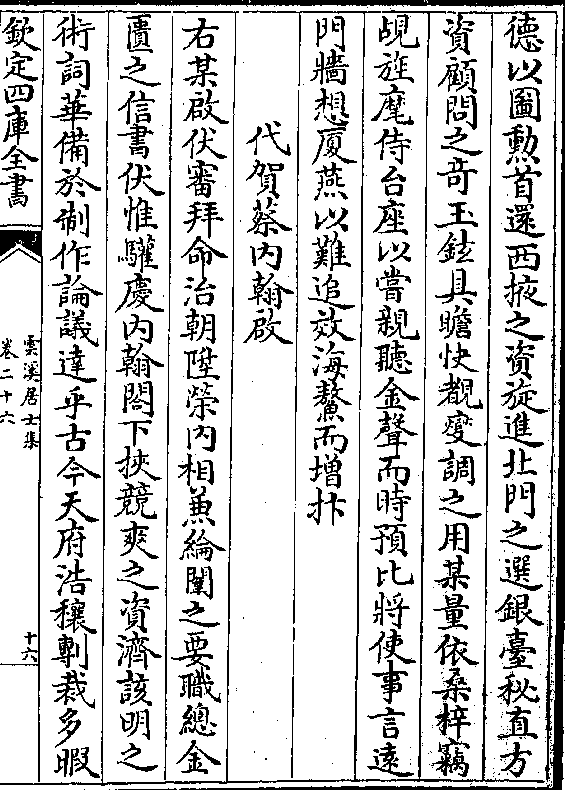 德以圖勲首還西掖之資旋進北門之選銀臺秘直方
資顧問之竒玉鉉具瞻快覩變調之用某量依桑梓竊
覘旌麾侍台座以嘗親聽金聲而時預比將使事言遠
門牆想厦燕以難追效海鰲而增抃
代賀蔡内翰啟
右某啟伏審拜命治朝陞榮内相兼綸闈之要職總金
匱之信書伏惟驩慶内翰閣下挾競爽之資濟該明之
術詞華備於制作論議達乎古今天府浩穰剸裁多暇
欽定四庫全書
雲溪居士集
卷二十六
十六